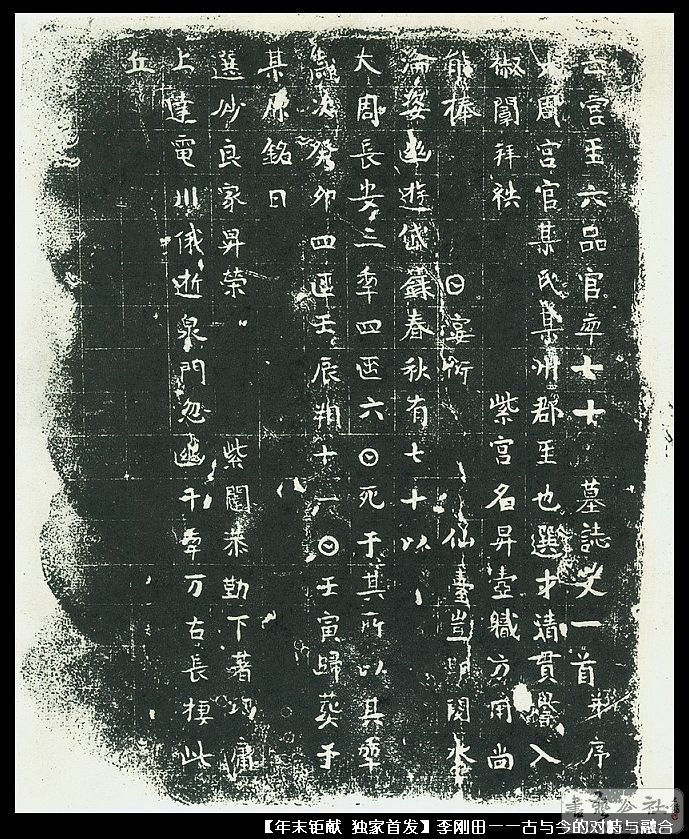 亡宮𤯔六品官𠡦七十 墓誌文一首并序
大周宮官某氏某州郡𤯔也選才清貫譽入
椒闈拜袟 紫宮名昇壺職方用尚
能捧 𡆠宴衍 仙臺豈期閱水
淪姿幽遊岱蘇春秋有七十以
大周長安三𠡦四𠥱六𡆠死于某所以其𠡦
歲次癸卯四𠥱壬辰朔十一𡆠壬寅歸葬于
某原銘曰
選妙良家昇榮 紫闥恭勤下著功庸
上達電川俄逝泉門忽幽千𠡦万古長棲此
丘
書藝公社
【年末钜献 独家首发】李刚田——古与今的对峙与融合